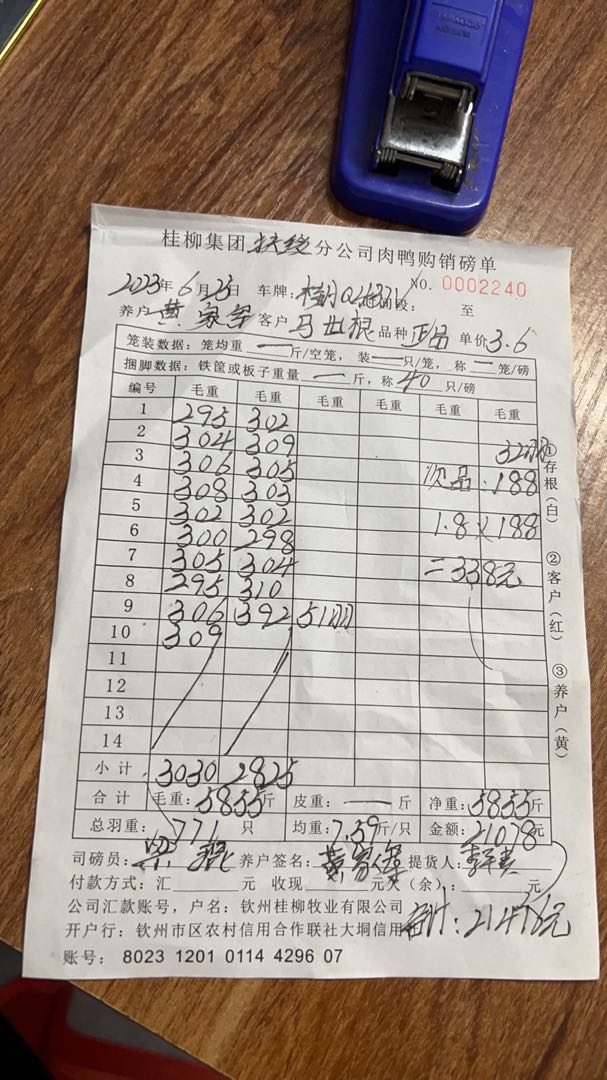 桂柳集团扶绥分公司肉鸭购销磅单
NO. 0002240
2023年6月23日 车牌: 时间段: 至
养户 黄家 客户 马世根 品种 正品 单价 3.6
笼装数据: 笼均重 一 斤/空笼, 装 一 只/笼, 称 一 笼/磅
捆脚数据: 铁筐或板子重量 一 斤, 称 40 只/磅
编号 毛重 毛重 毛重 毛重 毛重 毛重
1 295 302
2 304 309 32只
3 306 305 次品: 188
4 308 303
5 302 302 1.8×188
6 300 298
7 305 304 =338元
8 295 310
9 306 392 51只
10 309
11
12
13
14
小计 3030 2825
合计 毛重: 5855斤 皮重: 一 斤 净重: 5855斤
总羽重: 771 只 均重: 7.59斤/只 金额: 21078元
司磅员: 梁 养户签名: 黄家 提货人:
付款方式: 汇 元 收现 元欠(余): 元
公司汇款账号, 户名: 钦州桂柳牧业有限公司
合计: 21416元
开户行: 钦州市区农村信用合作联社大垌信用
账号: 8023 1201 0114 4296 07
①存根(白) ②客户(红) ③养户(黄)